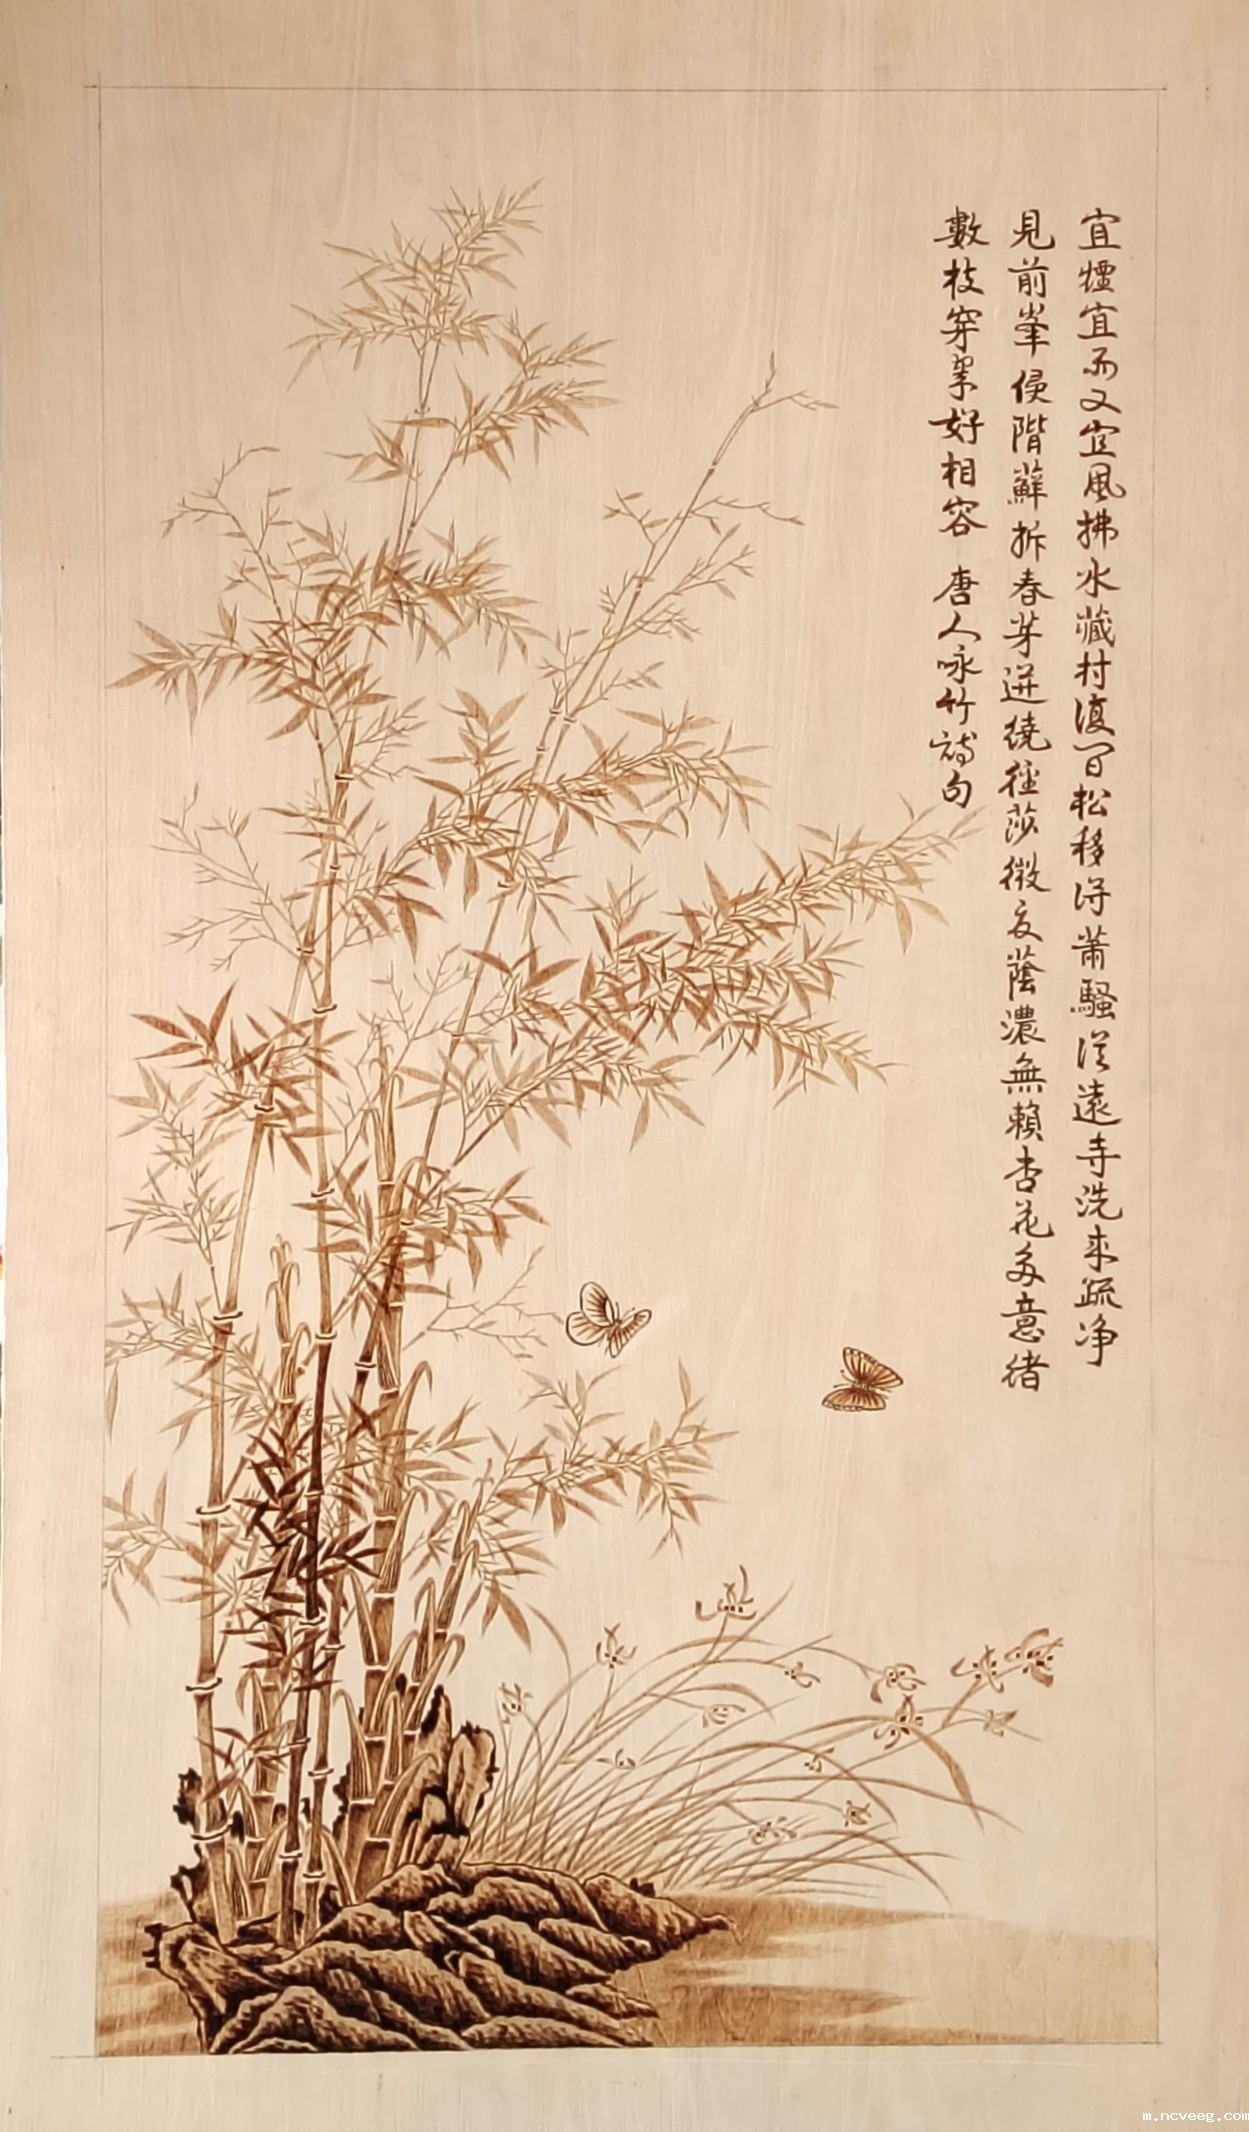 宜煙宜雨又宜風拂水藏村復間松移得蕭騷從遠寺洗來疏淨
見前峯侵階蘚拆春芽迸繞徑莎微夏蔭濃無賴杏花多意緒
數枝穿翠好相容 唐人咏竹詩句
m.ncveeg.com